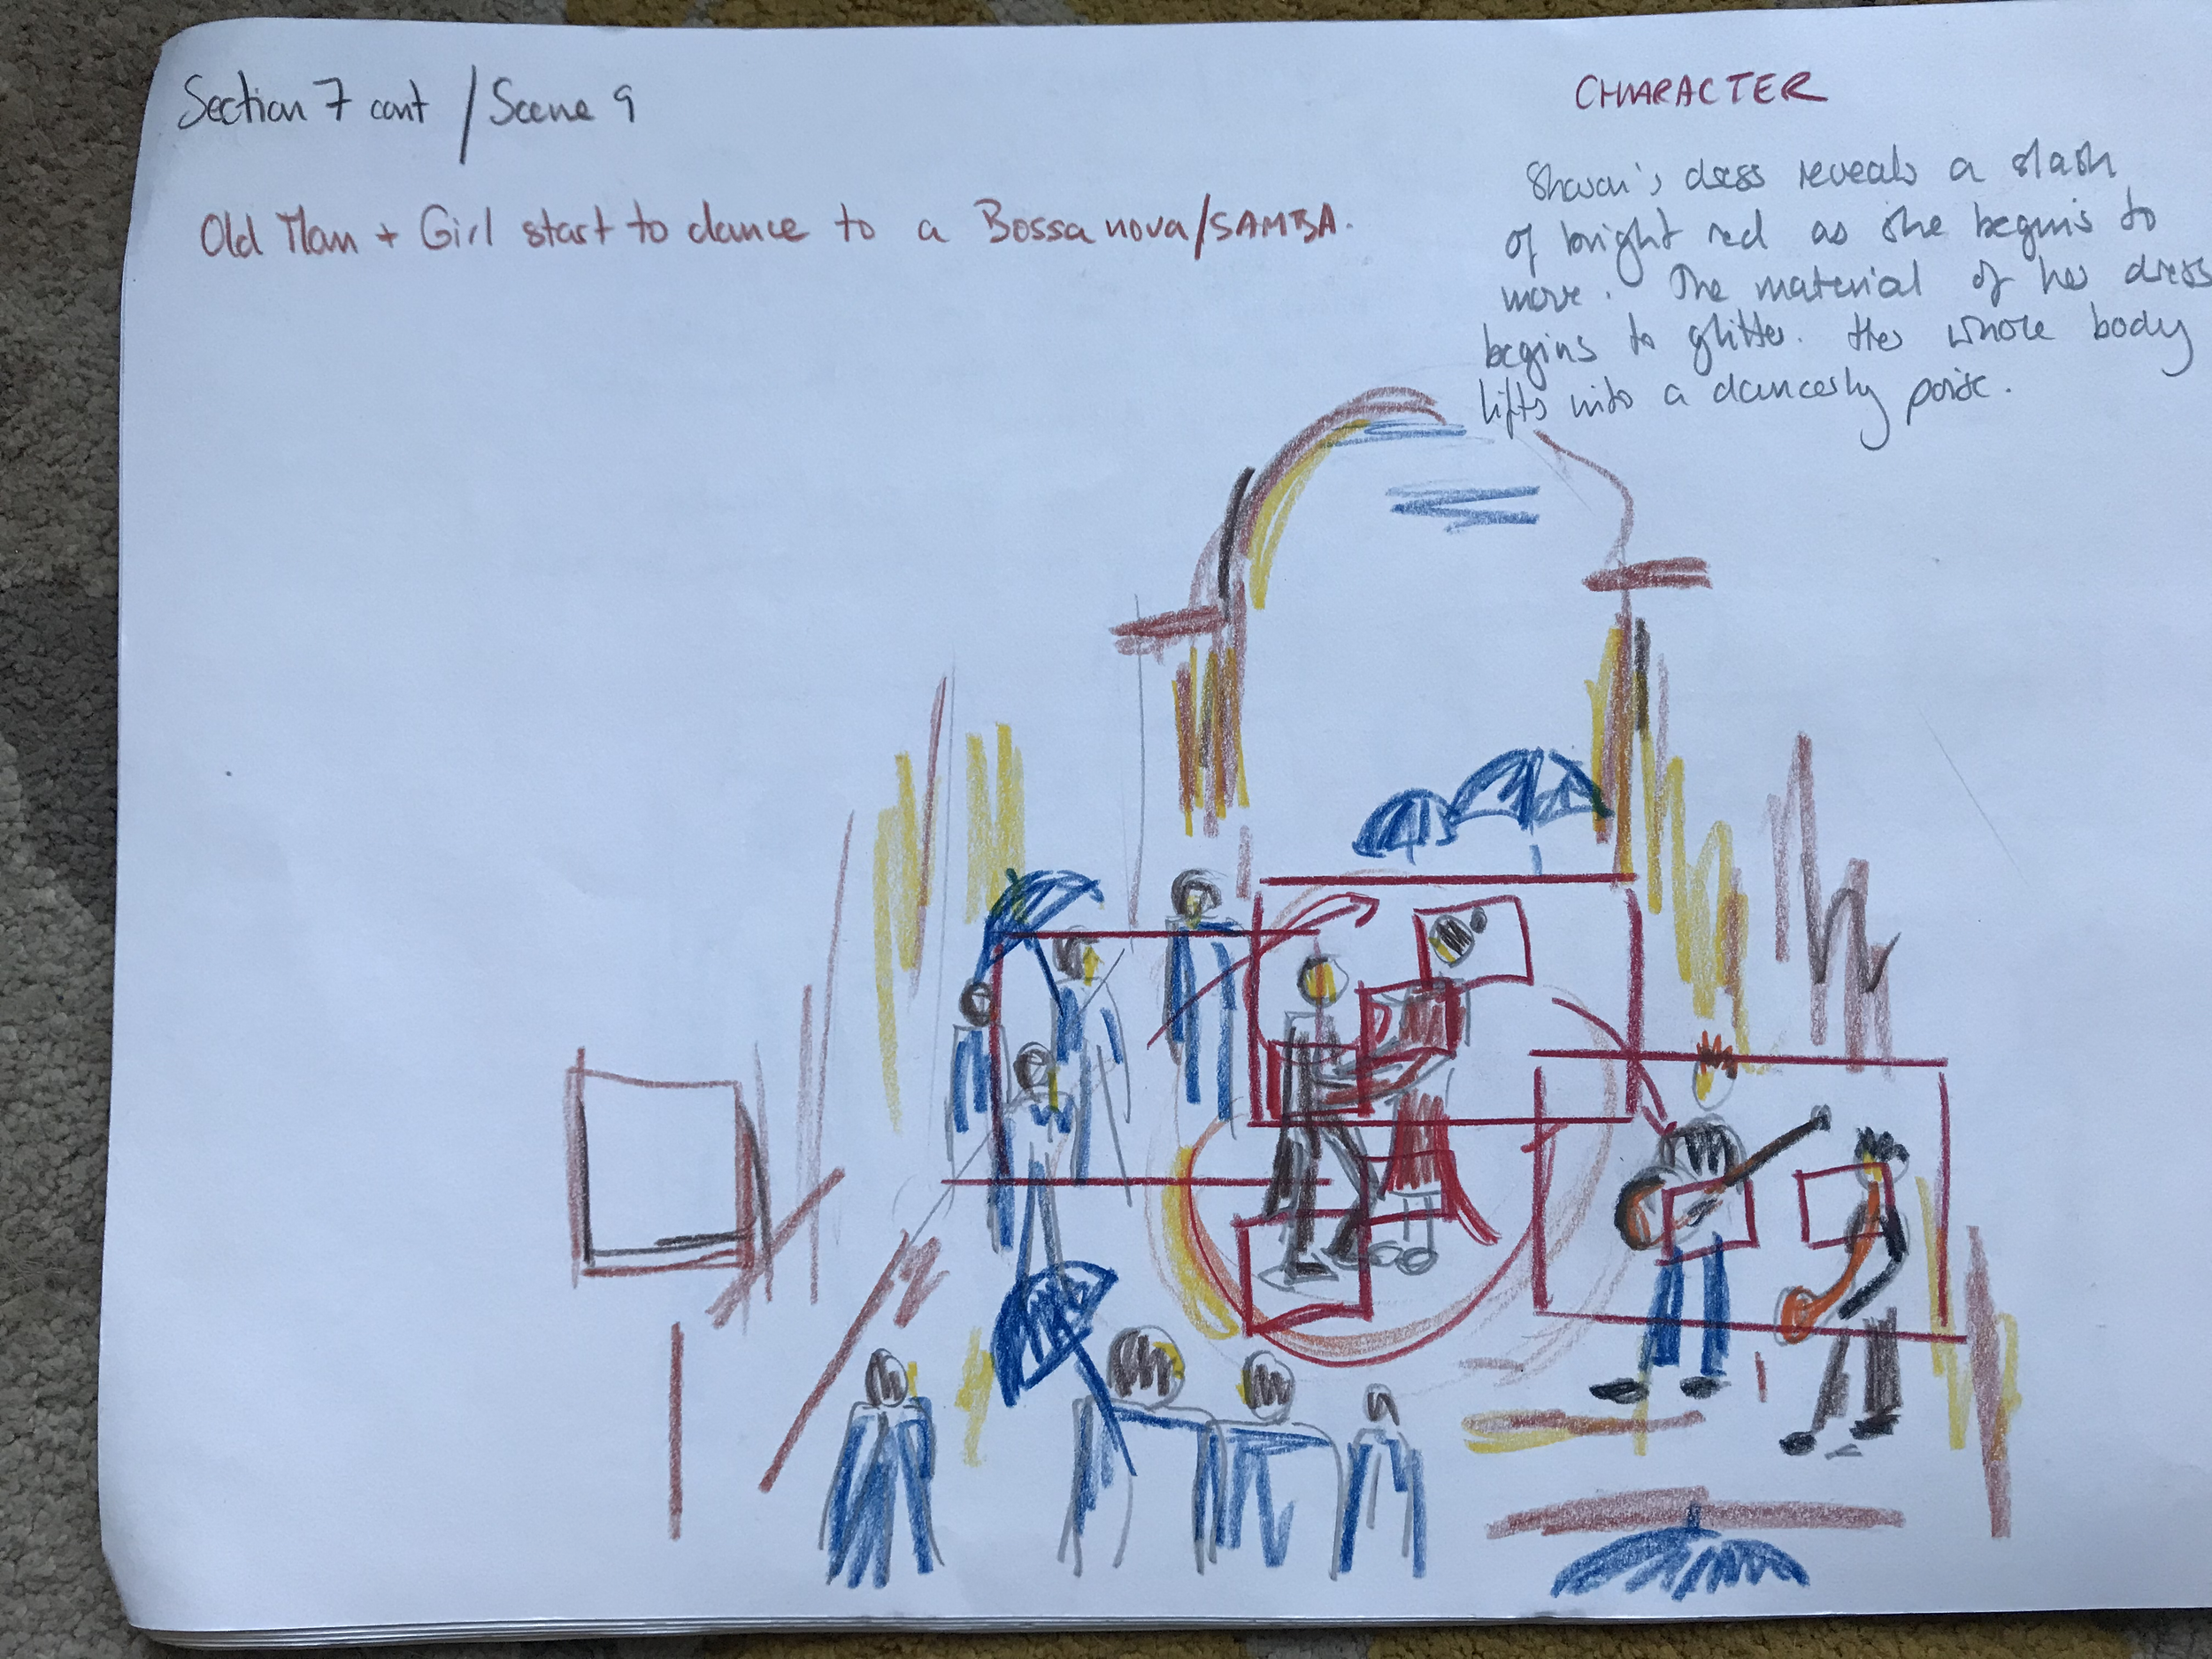 Section 7 cont / Scene 9
Old Man + Girl start to dance to a Bossa nova/SAMBA.
CHARACTER
Sharon's dress reveals a slash
of bright red as she begins to
move. The material of her dress
begins to glitter. Her whole body
lifts into a dancerly poise.